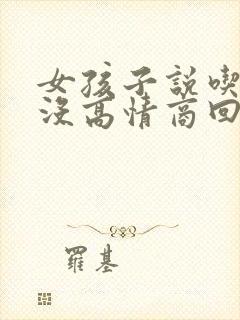 女孩子說喫
沒高情商回
羅基